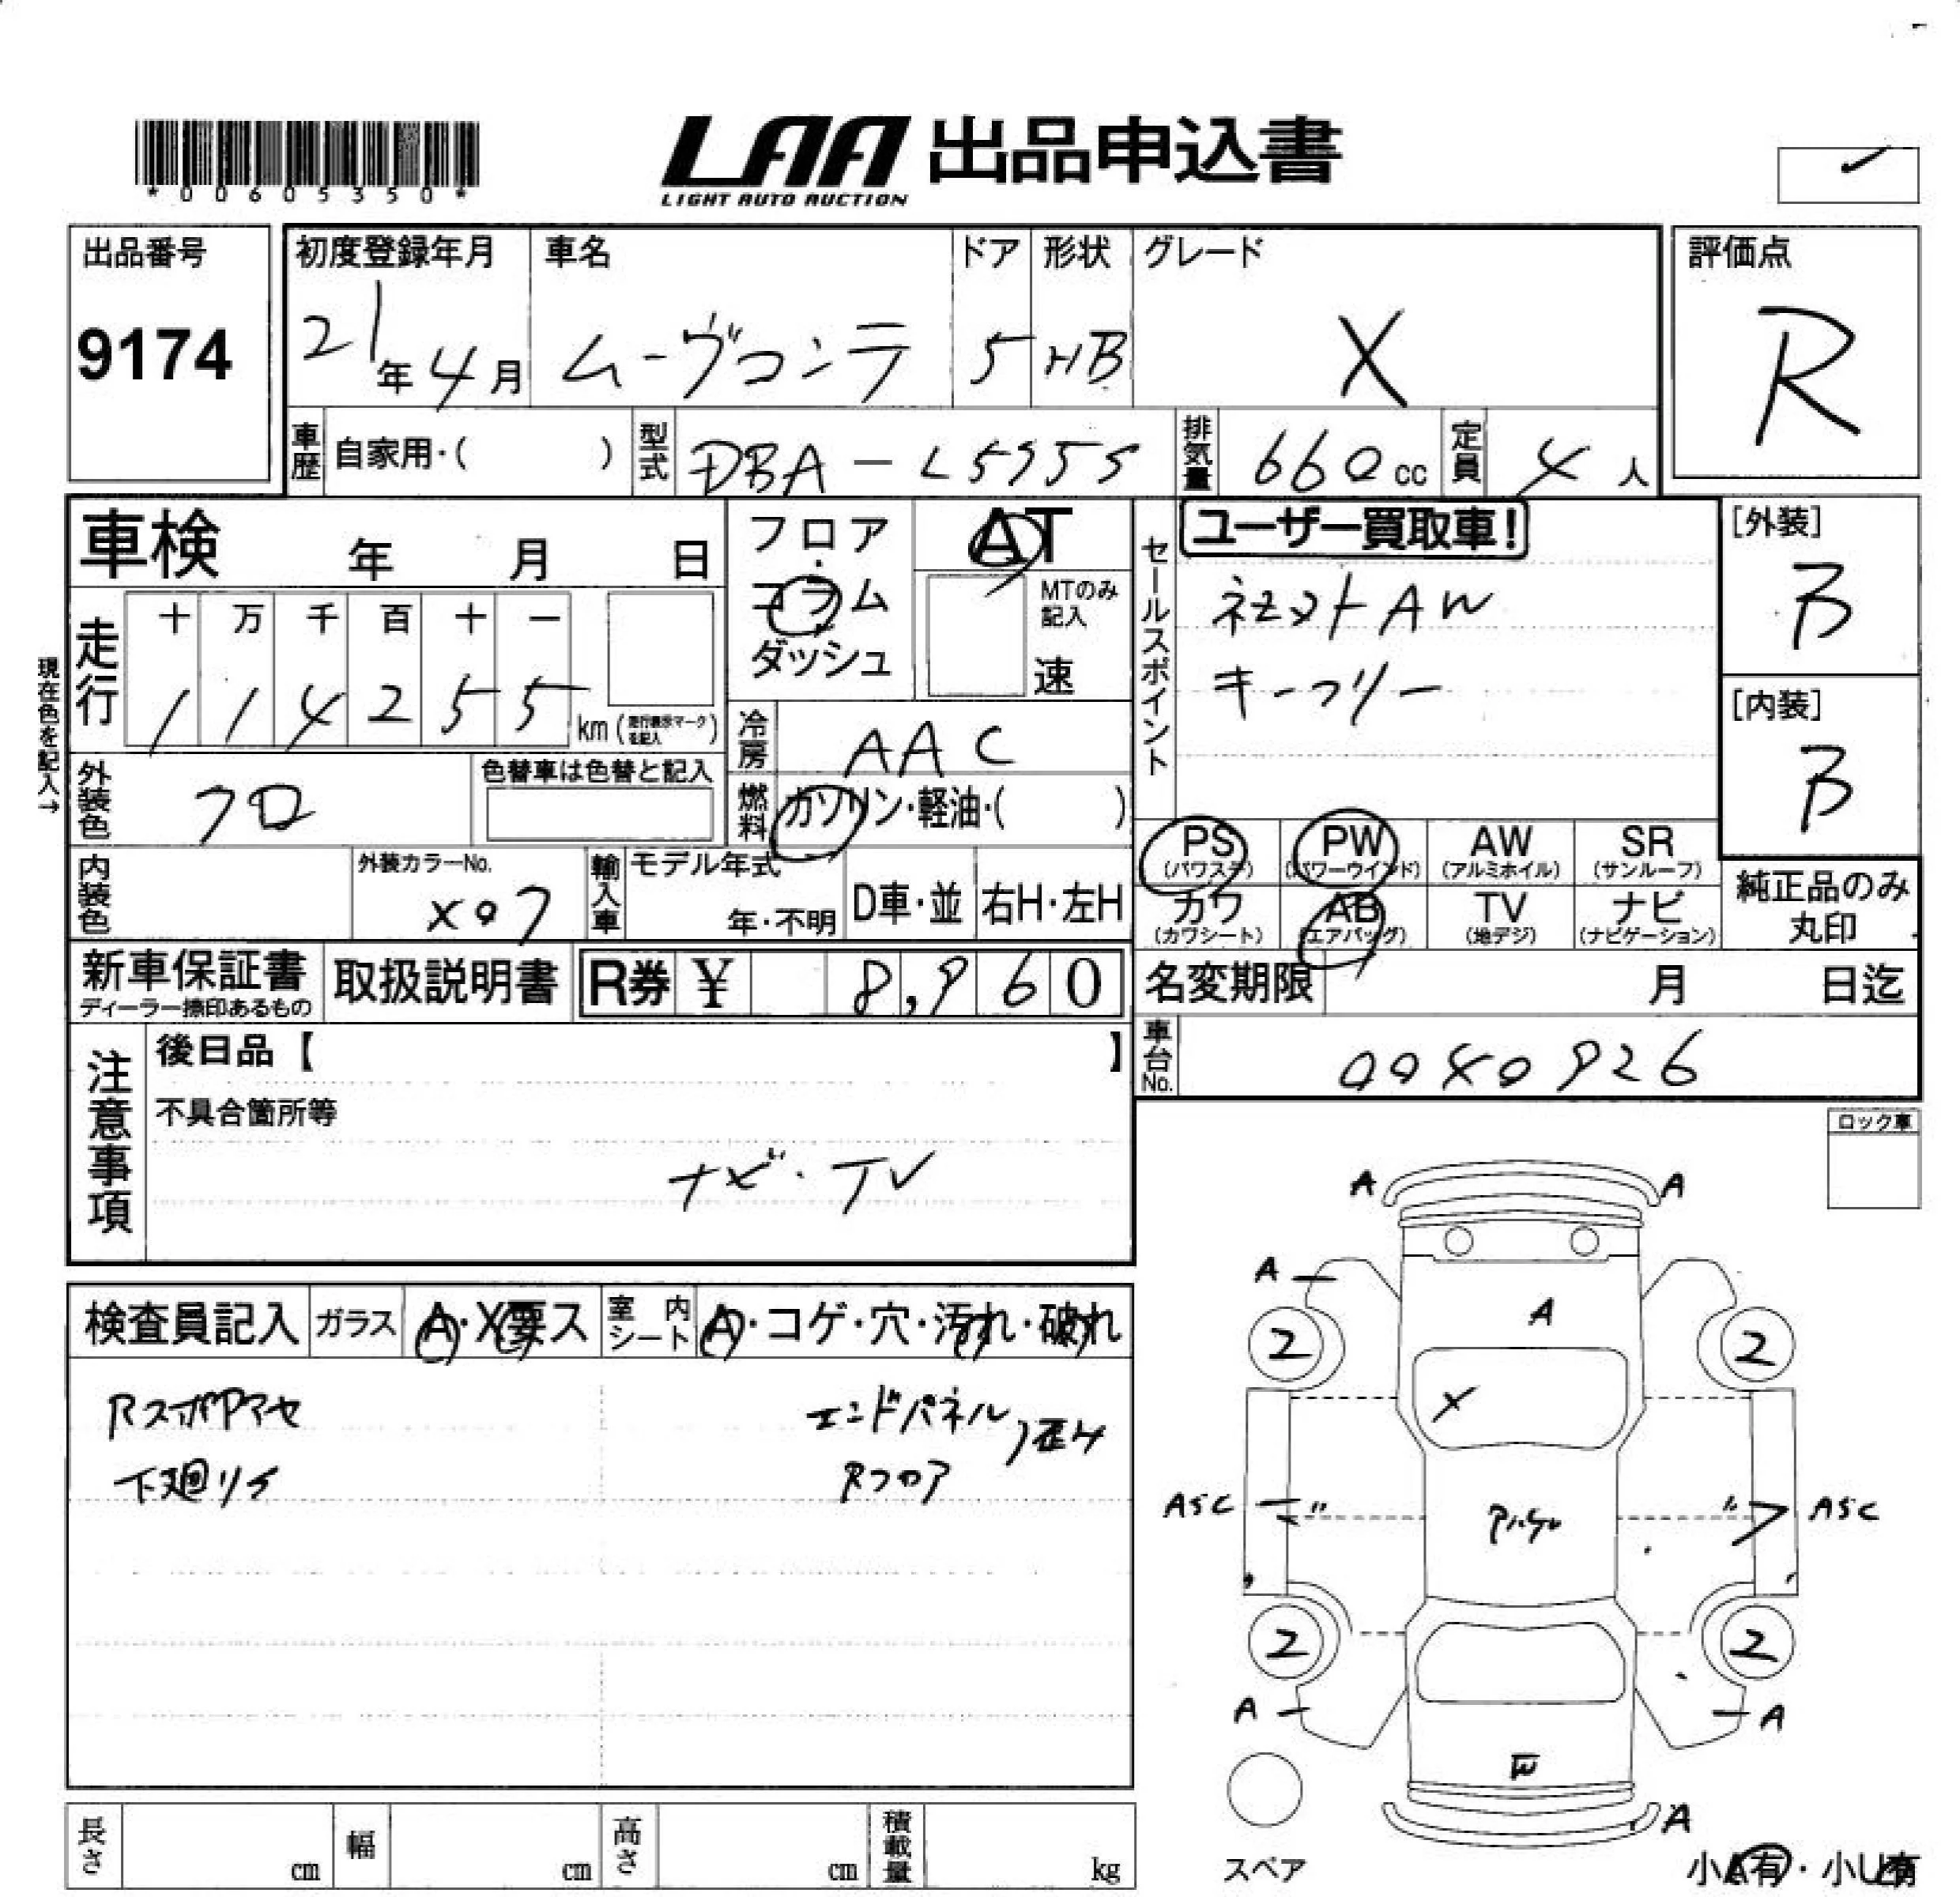 *00605350*
LAA 出品申込書
LIGHT AUTO AUCTION
出品番号
9174
初度登録年月
21年4月
車名
ムーヴコンテ
ドア
5
形状
HB
グレード
X
評価点
R
車歴 自家用・( )
型式 DBA-L575S
排気量 660cc
定員 4人
車検 年 月 日
フロア・コラム
ダッシュ
AT
MTのみ記入
速
走行
十 万 千 百 十 一
1 1 4 2 5 5 km (走行表示マークを記入)
現在色を記入→
冷房 AAC
外装色 クロ
色替車は色替と記入
燃料 ガソリン・軽油・( )
内装色
外装カラーNo.
X07
輸入車 モデル年式
年・不明
D車・並
右H・左H
セールスポイント
ユーザー買取車!
キーフリー
[外装]
B
[内装]
B
PS (パワステ)
PW (パワーウインド)
AW (アルミホイル)
SR (サンルーフ)
カワ (カワシート)
AB (エアバッグ)
TV (地デジ)
ナビ (ナビゲーション)
純正品のみ丸印
新車保証書
ディーラー捺印あるもの
取扱説明書
R券 ¥ 8,960
名変期限 月 日迄
車台No. 0040926
注意事項
後日品【 】
不具合箇所等
ナビ・TV
ロック車
検査員記入
ガラス A・X要ス
室内シート A・コゲ・穴・汚れ・破れ
エンドパネル
Rフロア
歪み
下廻りS
A A
A
A
2 2
X
ASC 〃 〃 ASC
2 2
A A
A
スペア
小A有・小U有
長さ cm
幅 cm
高さ cm
積載量 kg